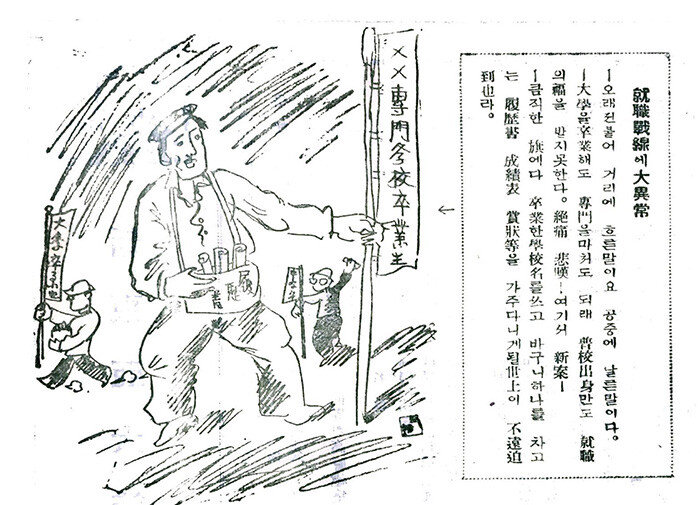 就職戰線에大異常
—오래전붙어 거리에 흐른말이요 공중에 날른말이다。
—大學을卒業해도 專門을마처도 되래 普校出身만도 就職
의福을 받지못한다。絕痛 悲嘆—여기서 新案—
—큼직한 旗에다 卒業한學校名를쓰고 바구니하나를 차고
는 履歷書 成績表 賞狀等을 가주다니게될世上이 不遠迫
到也라。
××專門学校卒業生
履歷書
大学卒